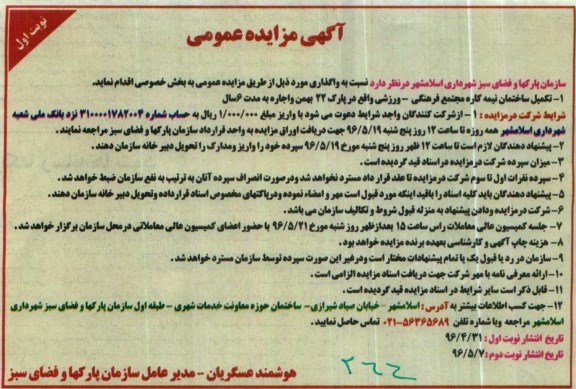 نوبت اول
آگهی مزایده عمومی
سازمان پارکها و فضای سبز شهرداری اسلامشهر درنظر دارد نسبت به واگذاری مورد ذیل از طریق مزایده عمومی به بخش خصوصی اقدام نماید.
۱- تکمیل ساختمان نیمه کاره مجتمع فرهنگی - ورزشی واقع در پارک ۲۲ بهمن واجاره به مدت ۶سال
شرایط شرکت درمزایده : ۱- ازشرکت کنندگان واجد شرایط دعوت می شود با واریز مبلغ ۱/۰۰۰/۰۰۰ ریال به حساب شماره ۳۱۰۰۰۰۱۷۸۲۰۰۴ نزد بانک ملی شعبه
شهرداری اسلامشهر همه روزه تا ساعت ۱۲ روز پنج شنبه ۹۶/۵/۱۹ جهت دریافت اوراق مزایده به واحد قرارداد سازمان پارکها و فضای سبز مراجعه نمایند.
۲- پیشنهاد دهندگان لازم است تا ساعت ۱۲ ظهر روز پنج شنبه مورخ ۹۶/۵/۱۹ سپرده خود را واریز ومدارک را تحویل دبیر خانه سازمان دهند.
۳- میزان سپرده شرکت درمزایده دراسناد قید گردیده است.
۴- سپرده نفرات اول تا سوم شرکت درمزایده تا عقد قرار داد مسترد نخواهد شد ودرصورت انصراف سپرده آنان به ترتیب به نفع سازمان ضبط خواهد شد.
۵- پیشنهاد دهندگان باید کلیه اسناد را باقید اینکه مورد قبول است مهر و امضاء نموده ودرپاکتهای مخصوص اسناد قرارداده وتحویل دبیر خانه سازمان دهند.
۶- شرکت درمزایده ودادن پیشنهاد به منزله قبول شروط و تکالیف سازمان می باشد.
۷- جلسه کمیسیون عالی معاملات راس ساعت ۱۵ بعدازظهر روز شنبه مورخ ۹۶/۵/۲۱ با حضور اعضای کمیسیون عالی معاملاتی درمحل سازمان برگزار خواهد شد.
۸- هزینه چاپ آگهی و کارشناسی بعهده برنده مزایده خواهد بود.
۹- سازمان در رد یا قبول یک یا تمام پیشنهادات مختار است ودرغیر این صورت سپرده توسط سازمان مسترد خواهد شد.
۱۰- ارائه معرفی نامه با مهر شرکت جهت دریافت اسناد مزایده الزامی است.
۱۱- قابل ذکر است سایر شرایط در اسناد مزایده قید گردیده است.
۱۲- جهت کسب اطلاعات بیشتر به آدرس : اسلامشهر - خیابان صیاد شیرازی - ساختمان حوزه معاونت خدمات شهری - طبقه اول سازمان پارکها و فضای سبز شهرداری
اسلامشهر مراجعه ویا شماره تلفن ۵۶۳۶۵۶۸۹-۰۲۱ تماس حاصل نمایید.
تاریخ انتشار نوبت اول : ۹۶/۴/۳۱
تاریخ انتشار نوبت دوم : ۹۶/۵/۷
هوشمند عسگریان - مدیر عامل سازمان پارکها و فضای سبز